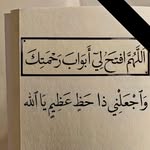 اللَّهُمَّ افْتَحْ لِي أَبْوَابَ رَحْمَتِكَ
وَاجْعَلْنِي ذَا حَظٍّ عَظِيمٍ يَا اللَّه